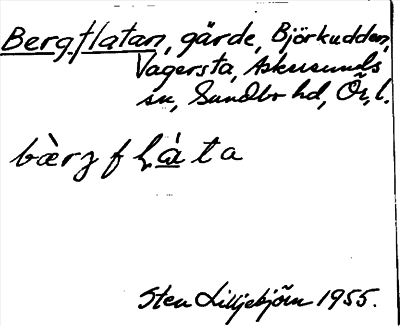 Bergflatan, gärde, Björkudden,
Vagersta, Askersunds
sn, Sundbo hd, Ör. l.
bàrʒfḷàta
Sten Lilljebjörn 1955.